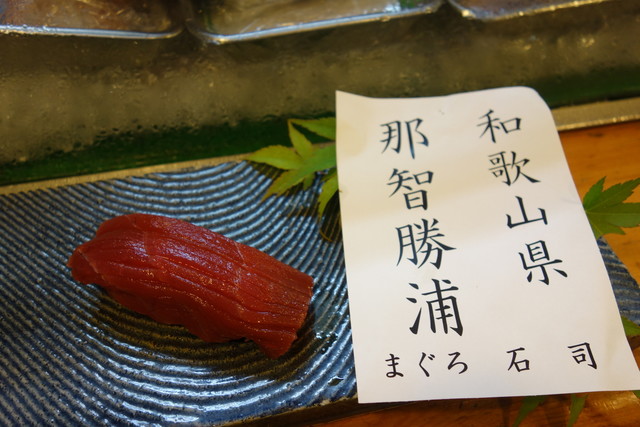 和歌山県
那智勝浦
まぐろ 石司